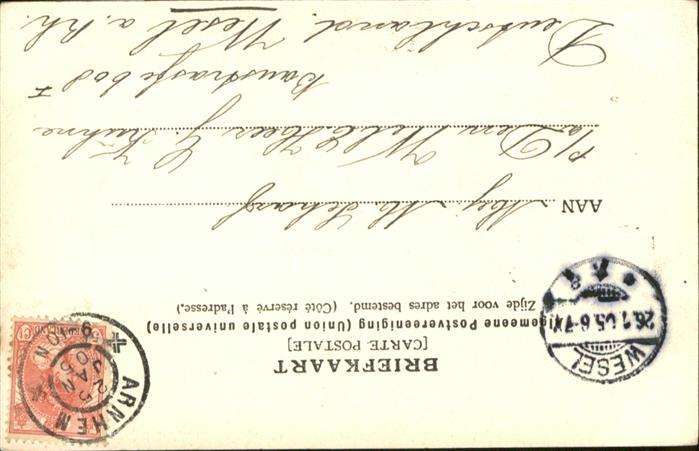 BRIEFKAART
[CARTE POSTALE]
Algemeene Postvereeniging (Union postale universelle)
Zijde voor het adres bestemd. (Côté réservé à l'adresse.)
AAN Mej. M. Scharff
p/a Den Heer G. Kühne
Baustrasse 608 I
Deutschland. Wesel a. Rh.
WESEL
26.1.05.6-7
ARNHEM
25 JAN 05